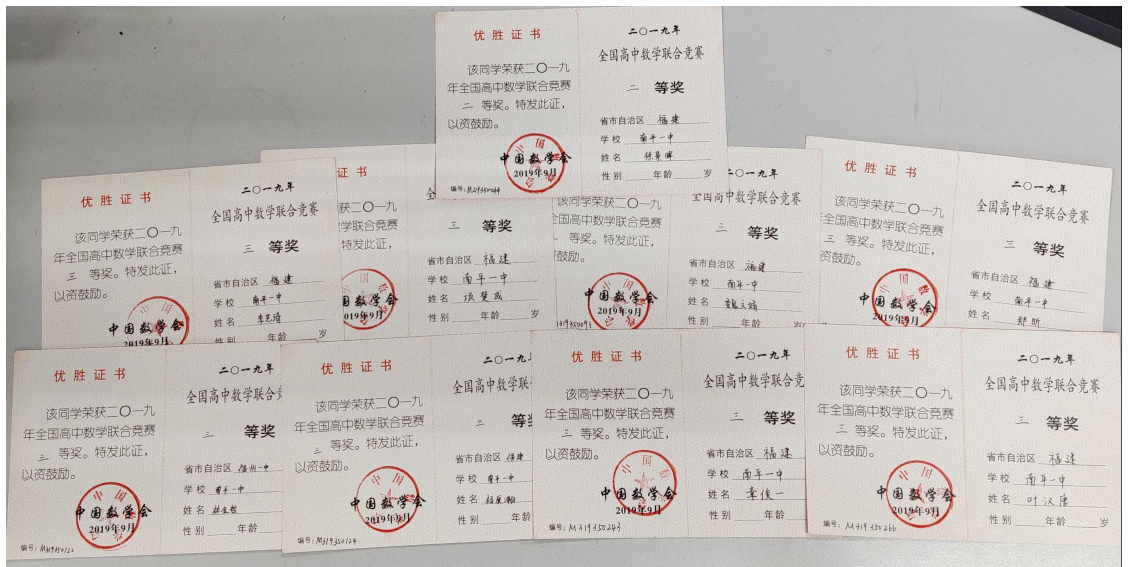 优胜证书
该同学荣获二〇一九
年全国高中数学联合竞赛
二 等奖。特发此证，
以资鼓励。
中国数学会
2019年9月
二〇一九年
全国高中数学联合竞赛
二 等奖
省市自治区 福建
学校 南平一中
姓名
性别 年龄 岁
优胜证书
该同学荣获二〇一九
年全国高中数学联合竞赛
三 等奖。特发此证，
以资鼓励。
中国数学会
2019年9月
二〇一九年
全国高中数学联合竞赛
三 等奖
省市自治区 福建
学校 南平一中
姓名
性别 年龄 岁
证书
荣获二〇一九
数学联合竞赛
特发此证，
国数学会
2019年9月
三 等奖
省市自治区 福建
学校 南平一中
姓名
性别 年龄
该同学荣获二〇一九
全国高中数学联合竞赛
等奖。特发此证，
资鼓励。
中国数学会
2019年9月
二〇一九年
全国高中数学联合竞赛
三 等奖
省市自治区 福建
学校 南平一中
姓名
性别 年龄
优胜证书
该同学荣获二〇一九
年全国高中数学联合竞赛
三 等奖。特发此证，
以资鼓励。
中国数学会
2019年9月
二〇一九年
全国高中数学联合竞赛
三 等奖
省市自治区 福建
学校 南平一中
姓名 郑昕
优胜证书
该同学荣获二〇一九
年全国高中数学联合竞赛
三 等奖。特发此证，
以资鼓励。
中国数学会
2019年9月
编号：M319350122
二〇一九年
全国高中数学联合竞
三 等奖
省市自治区 福州一中
学校 南平一中
姓名
性别 年龄
优胜证书
该同学荣获二〇一九
年全国高中数学联合竞赛
三 等奖。特发此证，
以资鼓励。
中国数学会
2019年9月
编号：M319350124
二〇一九
全国高中数学联
三 等
省市自治区 福建
学校 南平一中
姓名
性别 年龄
优胜证书
该同学荣获二〇一九
年全国高中数学联合竞赛
三 等奖。特发此证，
以资鼓励。
中国数学会
2019年9月
编号：M319350243
二〇一九年
全国高中数学联合竞
三 等奖
省市自治区 福建
学校 南平一中
姓名 章俊一
性别 年龄
优胜证书
该同学荣获二〇一九
年全国高中数学联合竞赛
三 等奖。特发此证，
以资鼓励。
中国数学会
2019年9月
编号：M319350266
二〇一九年
全国高中数学联合竞赛
三 等奖
省市自治区 福建
学校 南平一中
姓名 叶汉唐
性别 年龄 岁